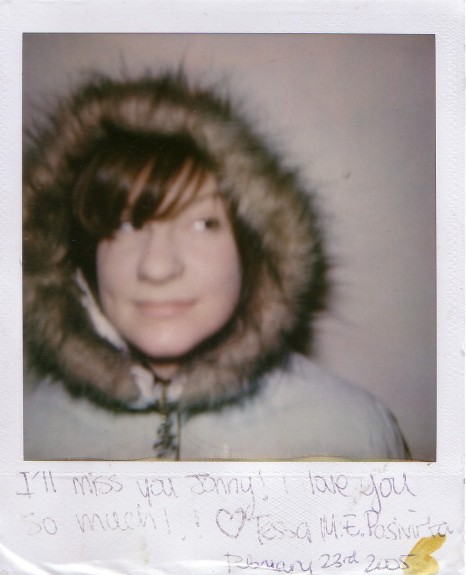 I'll miss you Jonny! I love you
so much!! ♡ Tessa M.E. Pasivirta
February 23rd 2005